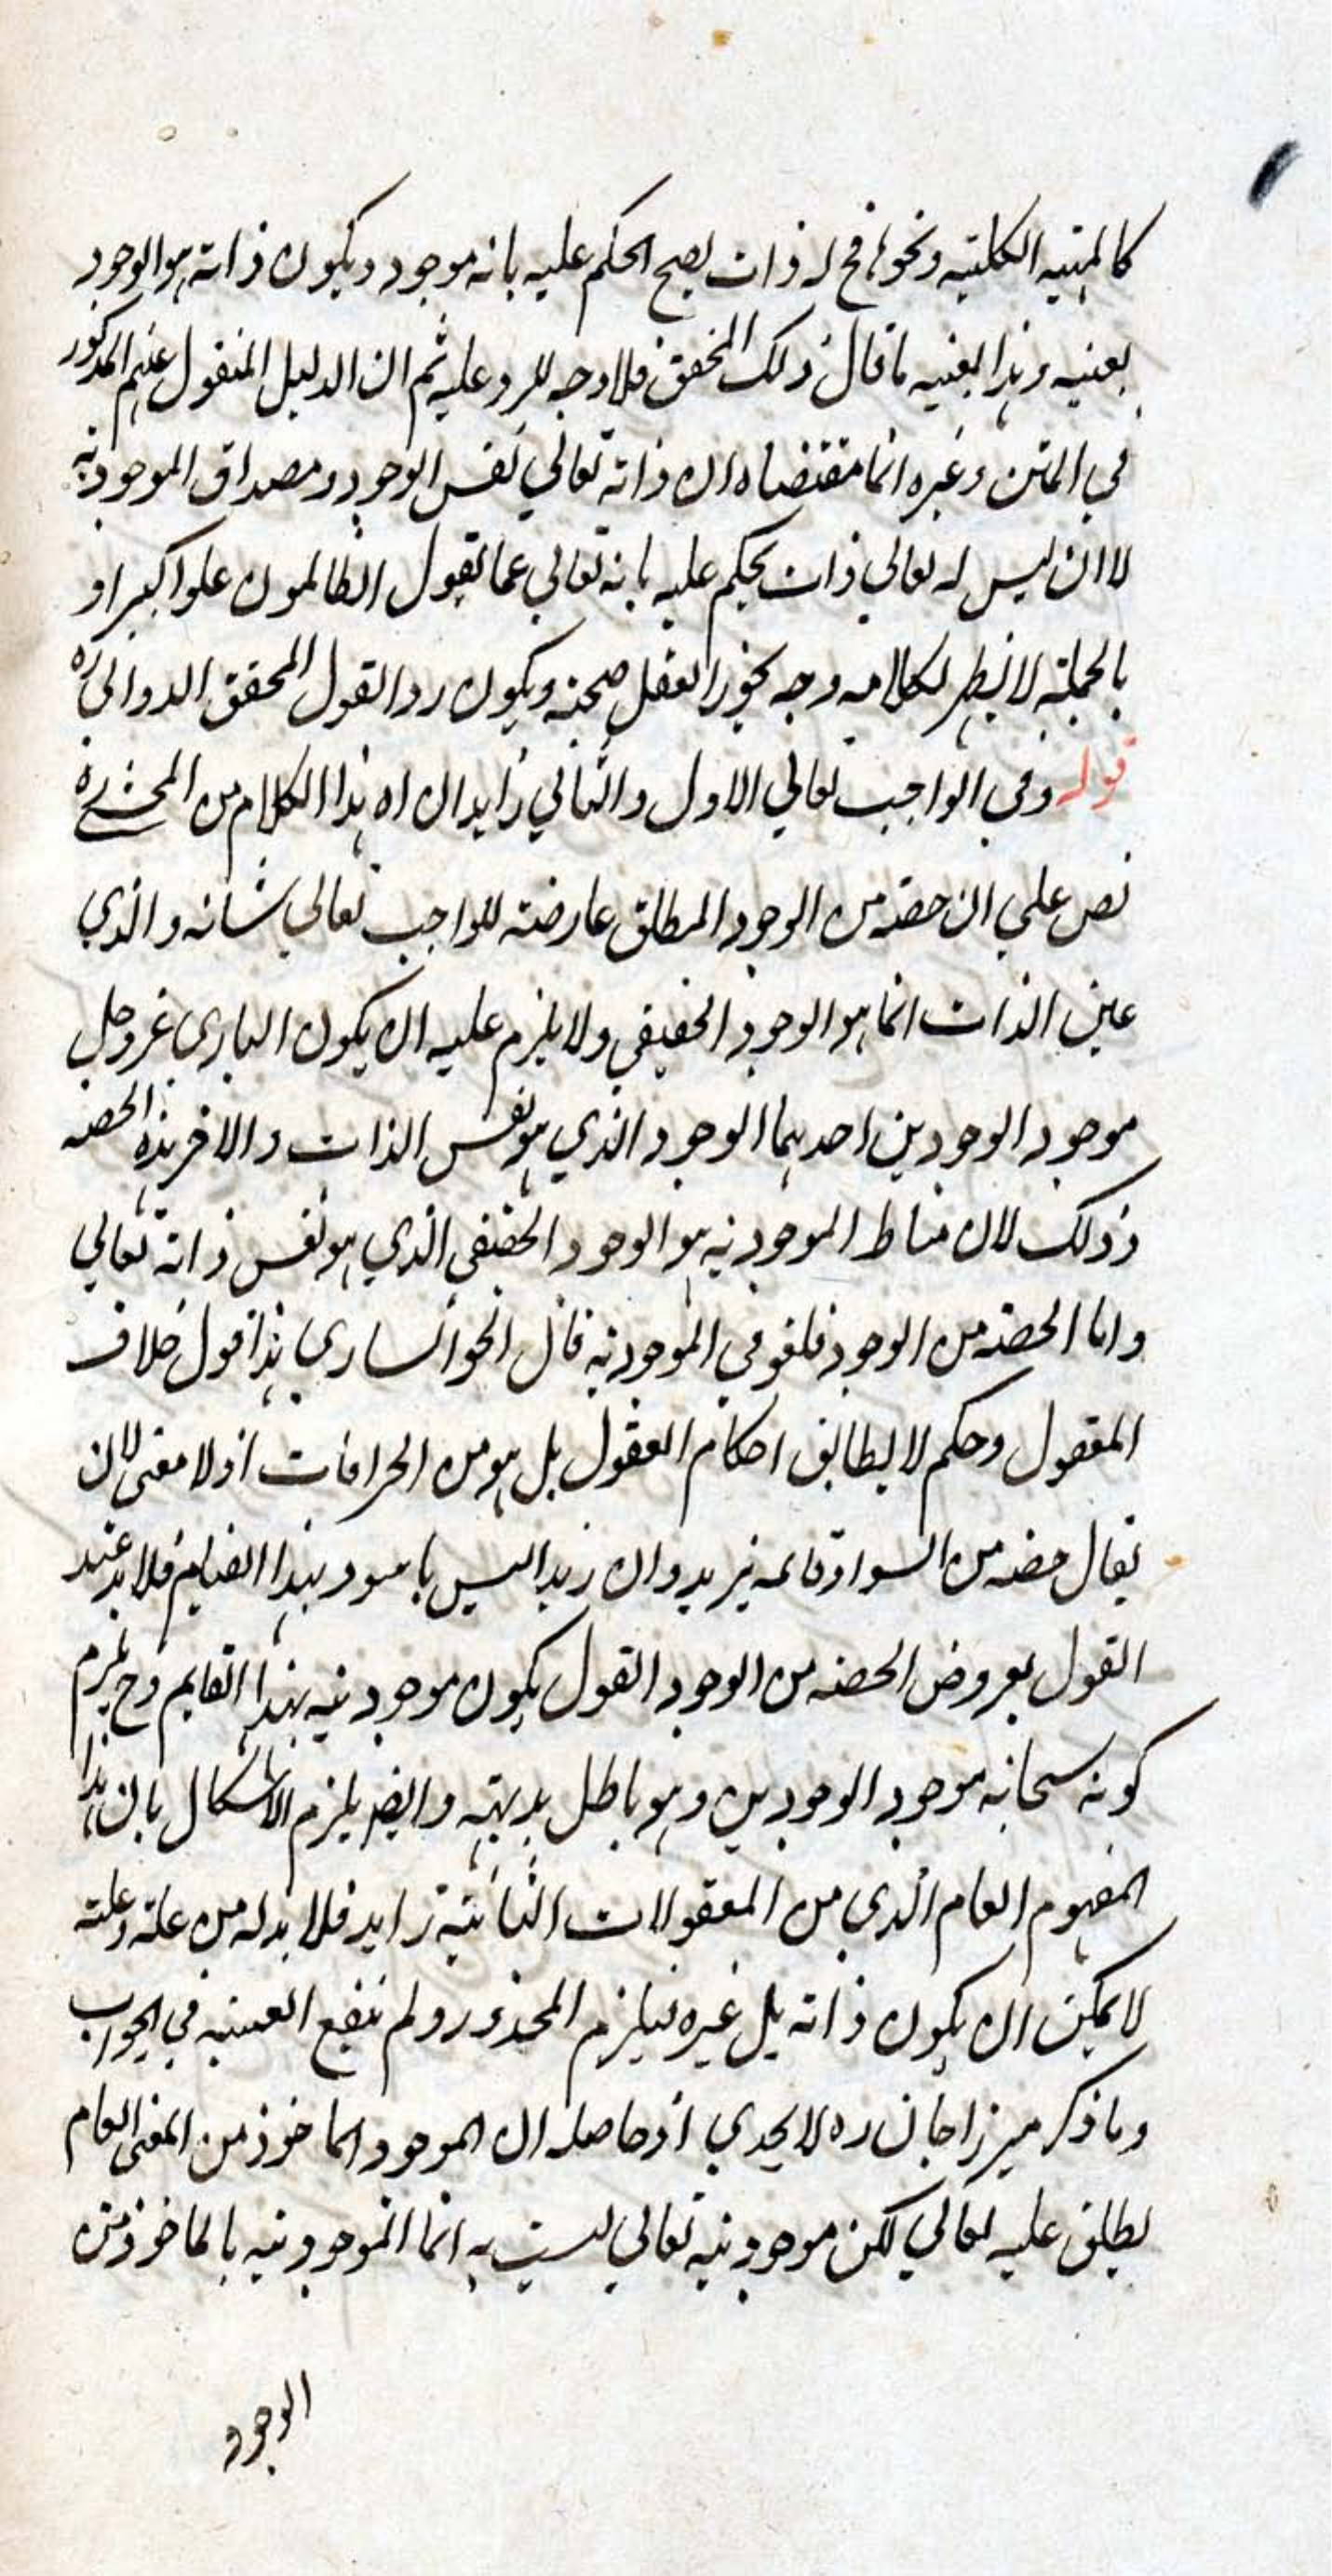 كالمهية الكلية ونحوها فح له ذات يصح الحكم عليه بانه موجود ويكون ذاته هو الوجود
بعينه وهذا بعينه ما قال ذلك المحقق فلا وجه للرد عليه ثم ان الدليل المنقول عنهم المذكور
في المتن وغيره انما مقتضاه ان ذاته تعالي نفس الوجود ومصداق الموجودية
لا ان ليس له تعالي ذات يحكم عليه بانه تعالي عما يقول الظالمون علوا كبيرا و
بالجملة لا يظهر لكلامه وجه يجوز العقل صحته ويكون ردا لقول المحقق الدواني ره
قوله وفي الواجب تعالي الاول والثاني زايدان اه هذا الكلام من المحشي ره
نص علي ان حصة من الوجود المطلق عارضة للواجب تعالي شانه والذي
عين الذات انما هو الوجود الحقيقي ولا يلزم عليه ان يكون الباري عز وجل
موجود الوجودين احدهما الوجود الذي هو نفس الذات والاخر هذه الحصة
وذلك لان مناط الموجودية هو الوجود الحقيقي الذي هو نفس ذاته تعالي
واما الحصة من الوجود فلغو في الموجودية قال الخوانساري هذا قول خلاف
المعقول وحكم لا يطابق احكام العقول بل هو من الخرافات اذ لا معني لان
يقال حصة من السواد قائمة بزيد وان زيدا ليس باسود بهذا القيام فلا بد عند
القول بعروض الحصة من الوجود القول بكون موجوديته بهذا القايم وح يلزم
كونه سبحانه موجود الوجودين وهو باطل بديهة وايضا يلزم الاشكال بان هذا
المفهوم العام الذي من المعقولات الثانية زايد فلا بد له من علة وعلته
لا يمكن ان يكون ذاته بل غيره فيلزم المحذور ولم ينفع العينية في الجواب
وما ذكر ميرزا جان ره لا يجدي اذ حاصله ان الموجود الماخوذ من المعني العام
يطلق عليه تعالي لكن موجوديته تعالي ليست به انما الموجودية بالماخوذ من
الوجود